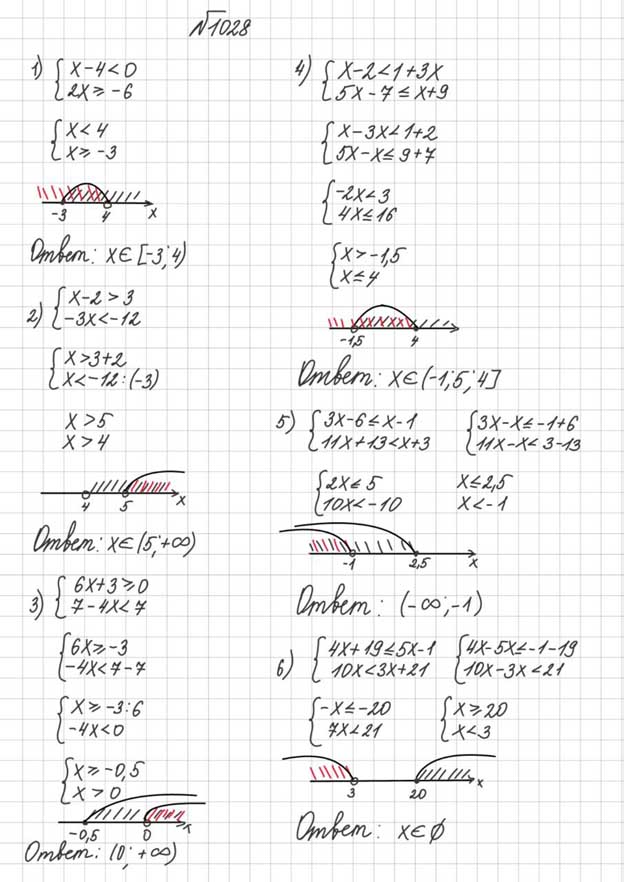 √1028
1) { x-4<0
2x ≥ -6
{ x<4
x ≥ -3
-3 4 x
Ответ: x∈[-3; 4)
2) { x-2>3
-3x<-12
{ x>3+2
x<-12:(-3)
x>5
x>4
4 5 x
Ответ: x∈(5; +∞)
3) { 6x+3 ≥ 0
7-4x<7
{ 6x ≥ -3
-4x<7-7
{ x ≥ -3:6
-4x<0
{ x ≥ -0,5
x>0
-0,5 0 x
Ответ: (0; +∞)
4) { x-2<1+3x
5x-7 ≤ x+9
{ x-3x<1+2
5x-x ≤ 9+7
{ -2x<3
4x ≤ 16
{ x>-1,5
x ≤ 4
-1,5 4
Ответ: x∈(-1,5; 4]
5) { 3x-6 ≤ x-1 { 3x-x ≤ -1+6
11x+13<x+3 11x-x<3-13
{ 2x ≤ 5 x ≤ 2,5
10x<-10 x<-1
-1 2,5 x
Ответ: (-∞; -1)
6) { 4x+19 ≤ 5x-1 { 4x-5x ≤ -1-19
10x<3x+21 10x-3x<21
{ -x ≤ -20 { x ≥ 20
7x<21 x<3
3 20 x
Ответ: x∈∅